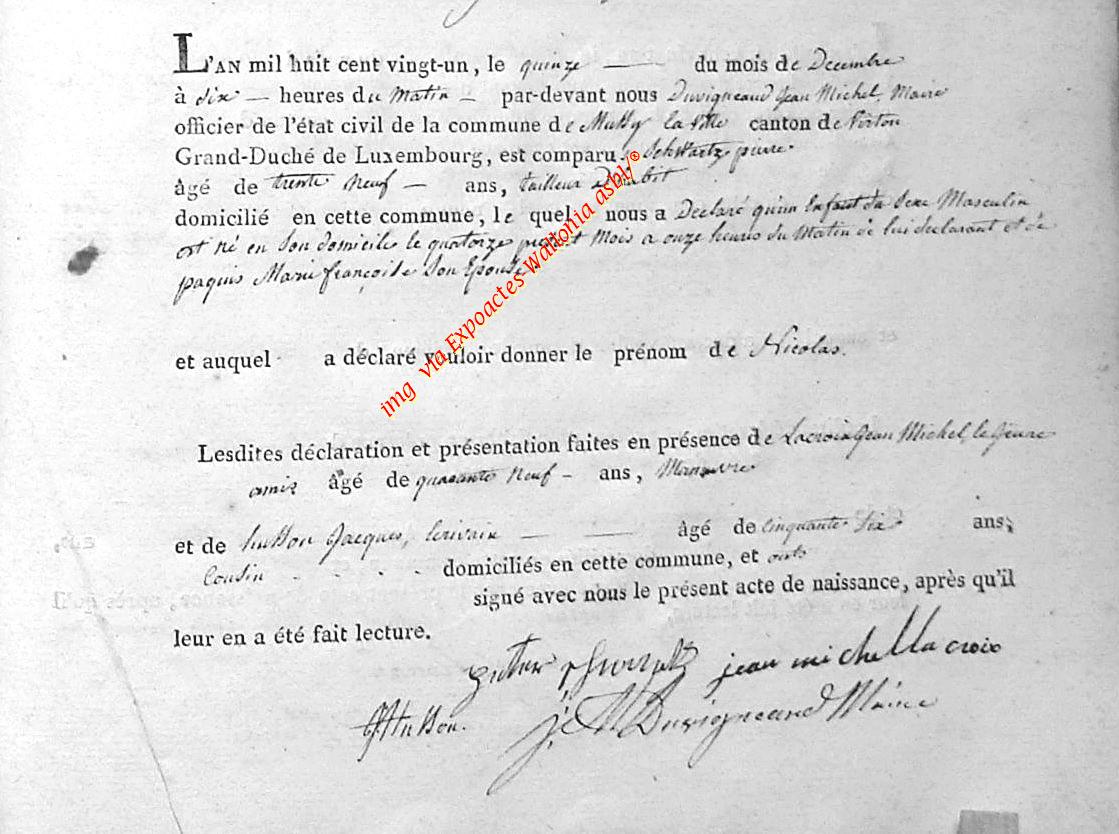 L'AN mil huit cent vingt-un, le quinze —— du mois de Decembre
à dix — heures du Matin — par-devant nous Duvigneaud Jean Michel, Maire
officier de l'état civil de la commune de Mussy la ville canton de Virton
Grand-Duché de Luxembourg, est comparu Schwartz pierre
âgé de trente Neuf — ans, tailleur d'habit
domicilié en cette commune, le quel nous a Declaré qu'un Enfant du Sexe Masculin
est né en Son domicile le quatorze présent Mois a onze heures du Matin de lui declarant et de
paquis Marie françoise Son Epouse.
img via Expoactes Wallonia asbl/©
et auquel a déclaré vouloir donner le prénom de Nicolas.
Lesdites déclaration et présentation faites en présence de Lacroix Jean Michel, le Jeune
amis âgé de quarante Neuf — ans, Manœuvre
et de husson Jacques, Ecrivain — — âgé de Cinquante Six ans,
Cousin . . . . domiciliés en cette commune, et onts
signé avec nous le présent acte de naissance, après qu'il
leur en a été fait lecture.
jean michel lacroix
JHusson. J. M Duvigneaud Maire